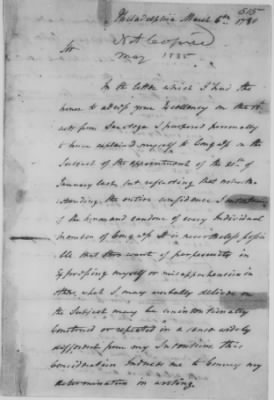 515
Philadelphia March 6th 1780
Sir
Not Copied
May 1835
In the letter which I had the
honor to your Excellency on the
from Saratoga I purposed personally
to have explained myself to Congress on the
Subject of the appointment of the 20th of
January last, but reflecting that notwith
standing the entire confidence I entertain
of the honor and candour of every Individual
member of Congress It is nevertheless possi
ble that thro want of perspicuity in
expressing myself or misapprehension in
others, what I may verbally deliver on
the Subject may be unintentionally
construed or repeated in a sense widely
different from my Intentions this
consideration Induces me to convey my
determination in writing.